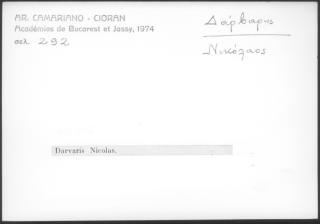 AR. CAMARIANO - CIORAN
Académies de Bucarest et Jassy, 1974
σελ. 292
Δάρβαρης
Νικόλαος
Darvaris Nicolas.